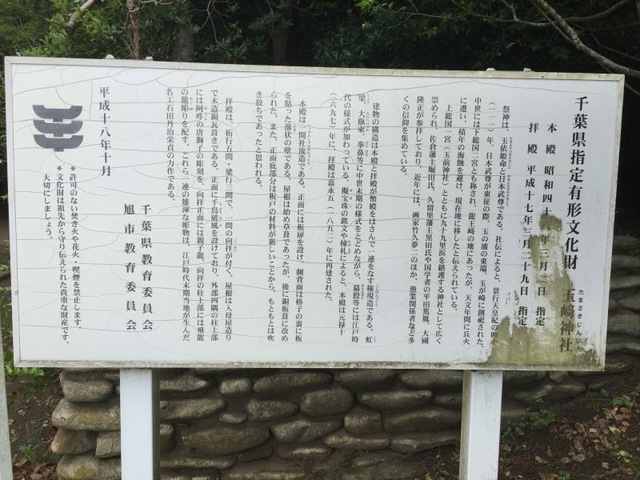 千葉県指定有形文化財 玉﨑神社
たまさきじんじゃ
本殿 昭和四十 年三月二 日 指定
拝殿 平成十七年三月二十九日 指定
祭神は、玉依姫命と日本武尊である。社伝によると、景行天皇紀の
(一一二)年、日本武尊が東征の際、玉の浦の東端、玉が崎に創祀された。
中世には下総国二宮とも称され、龍王崎の地にあったが、天文年間に兵火
に遭い、積年の海蝕を避け、現在地に移したと伝えられている。
上総国一宮(玉前神社)とともに九十九里浜を鎮護する神社として広く
崇められ、佐倉藩主堀田氏、久留里藩主黒田氏や国学者の平田篤胤、大國
隆正が参拝しており、近年には、画家竹久夢二のほか、漁業関係者など多
くの信仰を集めている。
建物の構造は本殿と拝殿が幣殿をはさんで一連をなす権現造である。虹
梁、大瓶束、拳鼻等に中世末期の様式をとどめながら、蟇股等には江戸時
代の様式が加わっている。擬宝珠の銘文や棟札によると、本殿は元禄十
(一六九七)年に、拝殿は嘉永五(一八五二)年に再建された。
本殿は、一間社流造である。正面には板扉を設け、側背面は格子の裏に板
を貼った蔀状の壁である。屋根は始め草葺であったが、後に銅板葺に改め
られた。また、正面底部分は板戸の材料が新しいことから、もともとは吹
き放ちであったと思われる。
拝殿は、桁行五間・梁行二間で、一間の向拝が付く。屋根は入母屋造り
で木造銅瓦葺きである。正面に千鳥破風を設けており、外部四隅の柱上部
には阿吽の唐獅子の彫刻を、向拝正面には親子龍、向拝の柱上部には飛龍
の籠彫りを配す。これら一連の雄渾な彫物は、江戸時代末期当地が生んだ
名工石田丹治栄貞の力作である。
平成十八年十月
千葉県教育委員会
旭市教育委員会
※許可のない焚き火や花火・喫煙を禁止します。
※文化財は祖先から守り伝えられた貴重な財産です。
大切にしましょう。